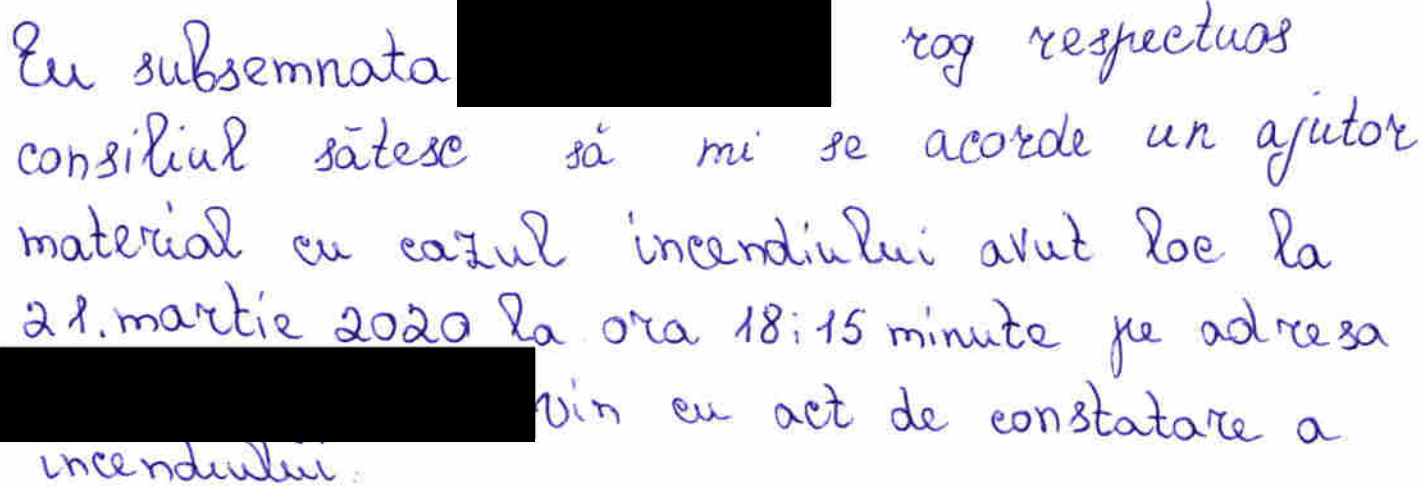 Eu subsemnata rog respectuos
consiliul sătesc să mi se acorde un ajutor
material cu cazul incendiului avut loc la
21. martie 2020 la ora 18:15 minute pe adresa
vin cu act de constatare a
incendiului.